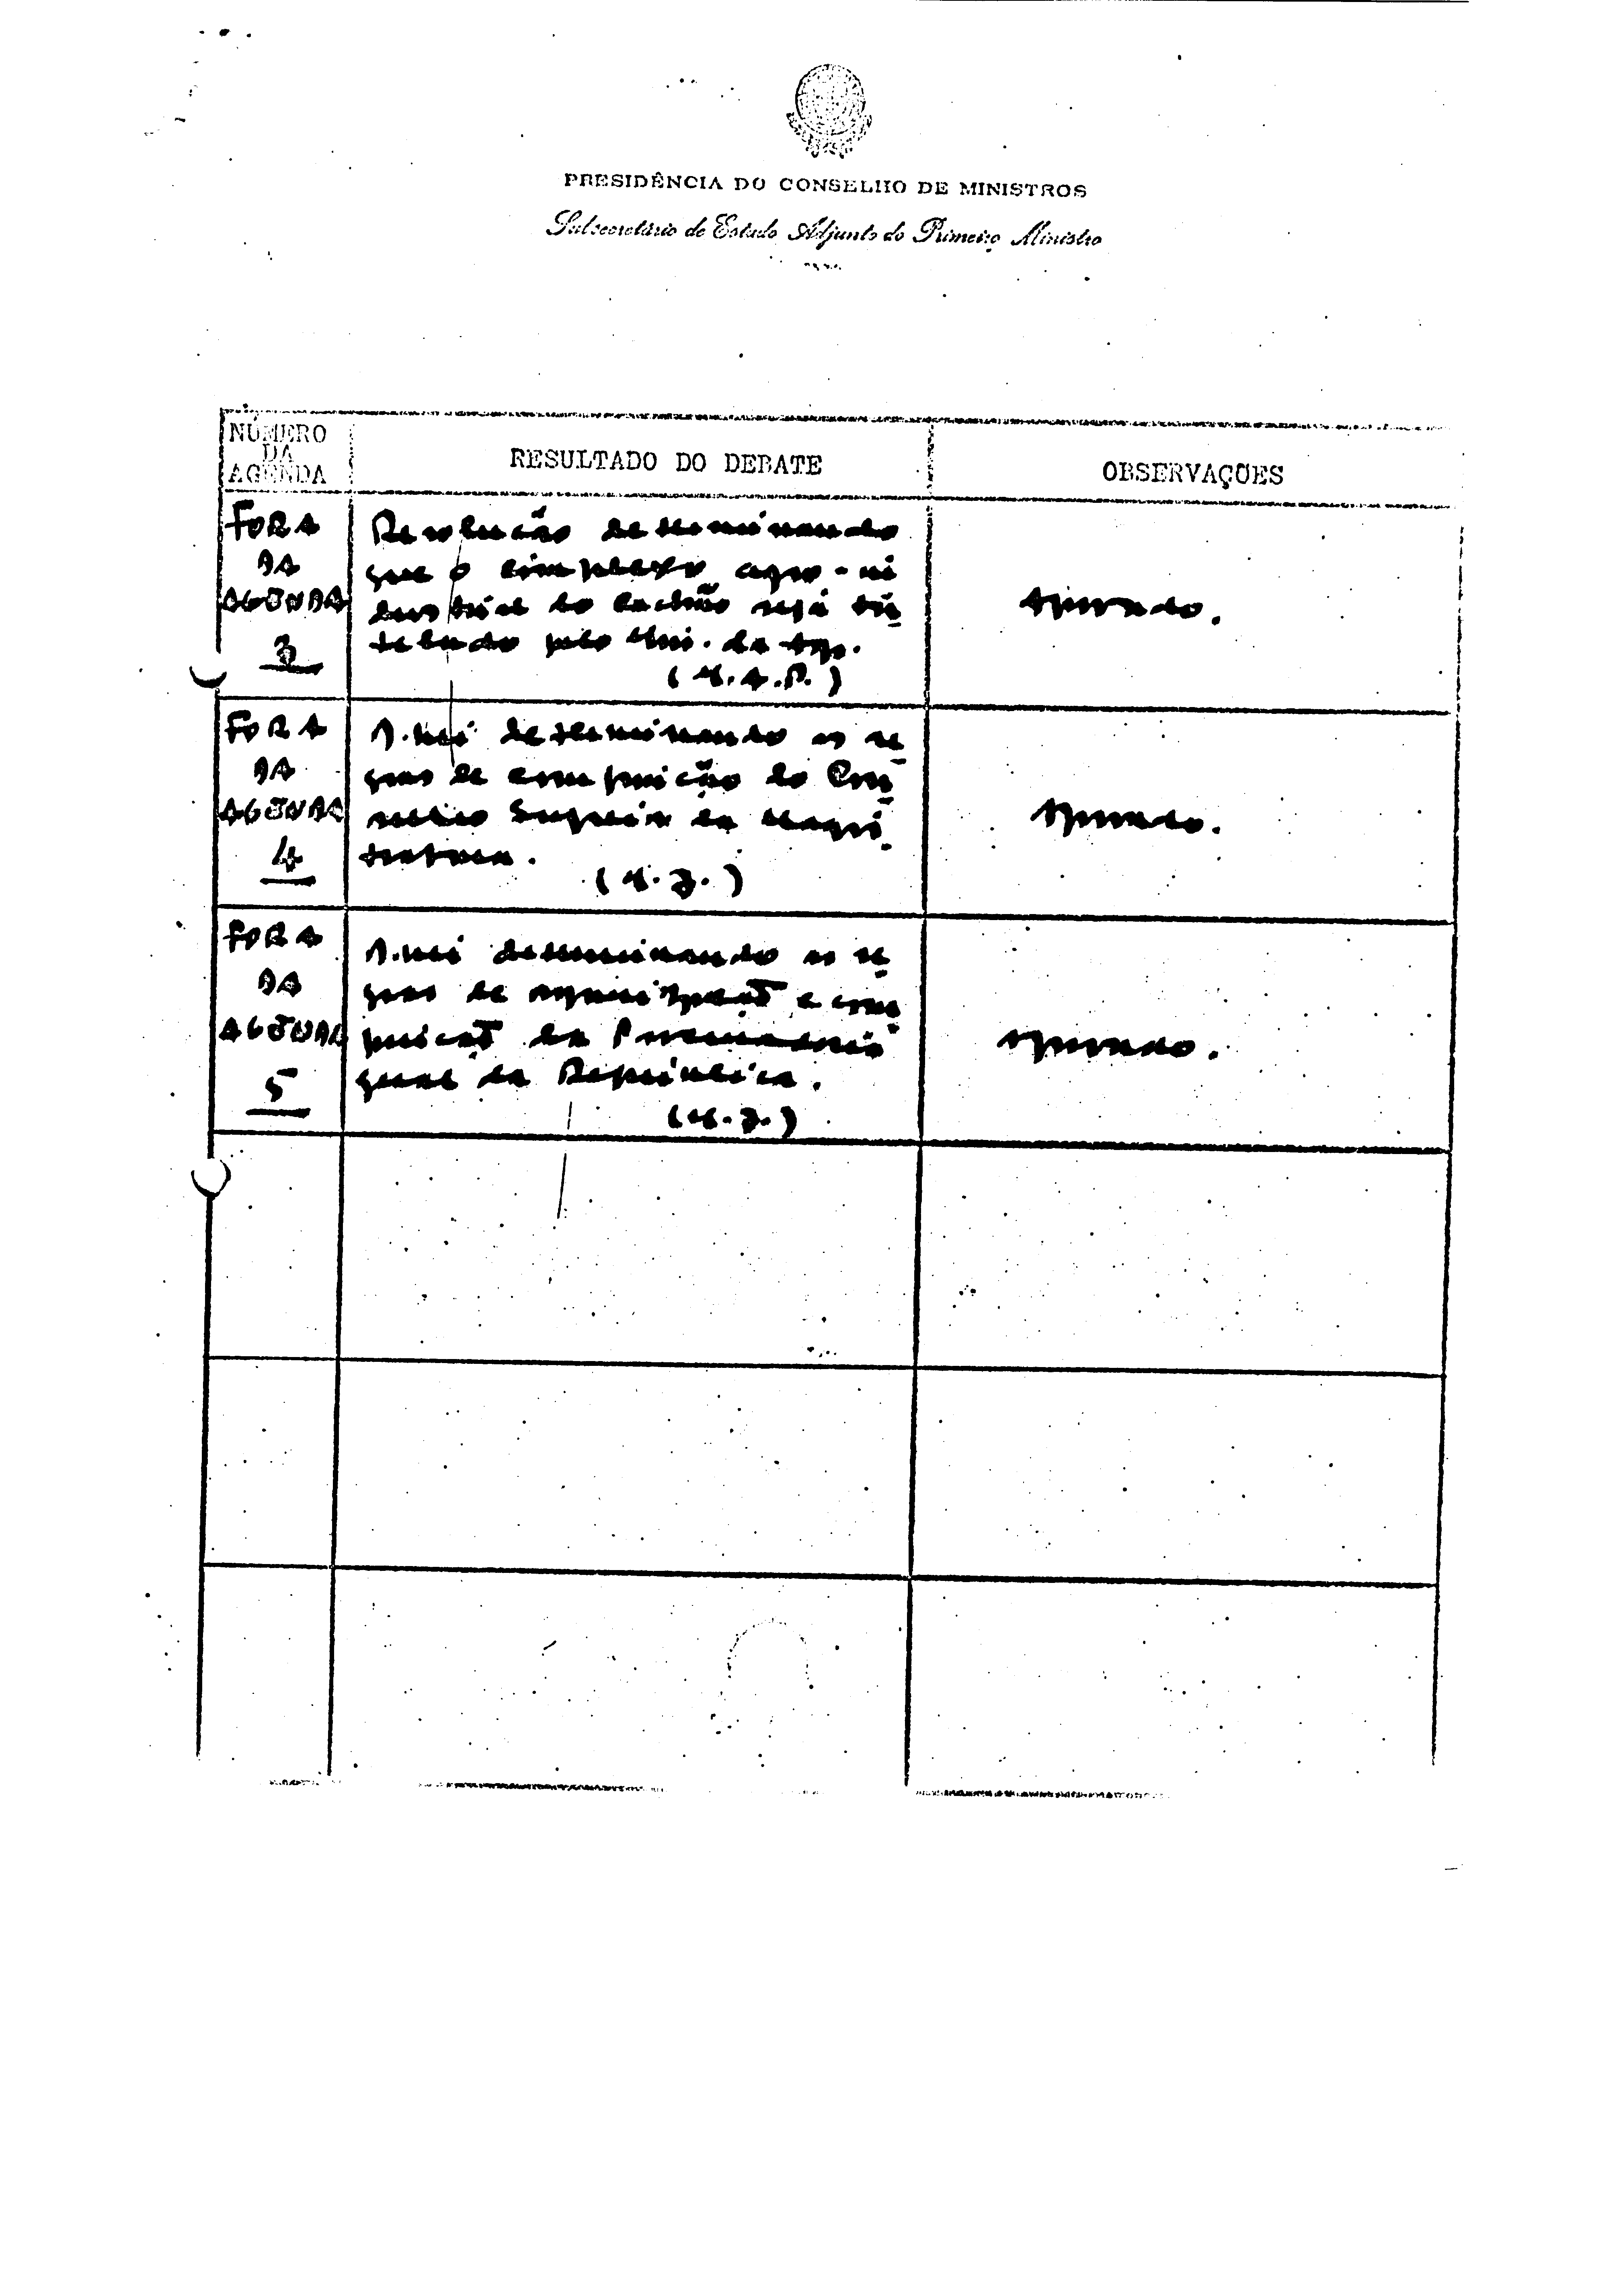 PRESIDÊNCIA DO CONSELHO DE MINISTROS
Subsecretário de Estado Adjunto do Primeiro Ministro
NÚMERO
DA
AGENDA
RESULTADO DO DEBATE
OBSERVAÇÕES
FORA
DA
AGENDA
3
Resolução determinando
que o complexo agro-in
dustrial do Cachão seja tu
telado pelo Min. da Agr.
(M.A.P.)
Aprovado.
FORA
DA
AGENDA
4
D. Lei determinando as re
gras de composição do Con
selho Superior da Magis
tratura.
(M.J.)
Aprovado.
FORA
DA
AGENDA
5
D. Lei determinando as re
gras de organização e com
posição da Procuradoria
Geral da República.
(M.J.)
Aprovado.